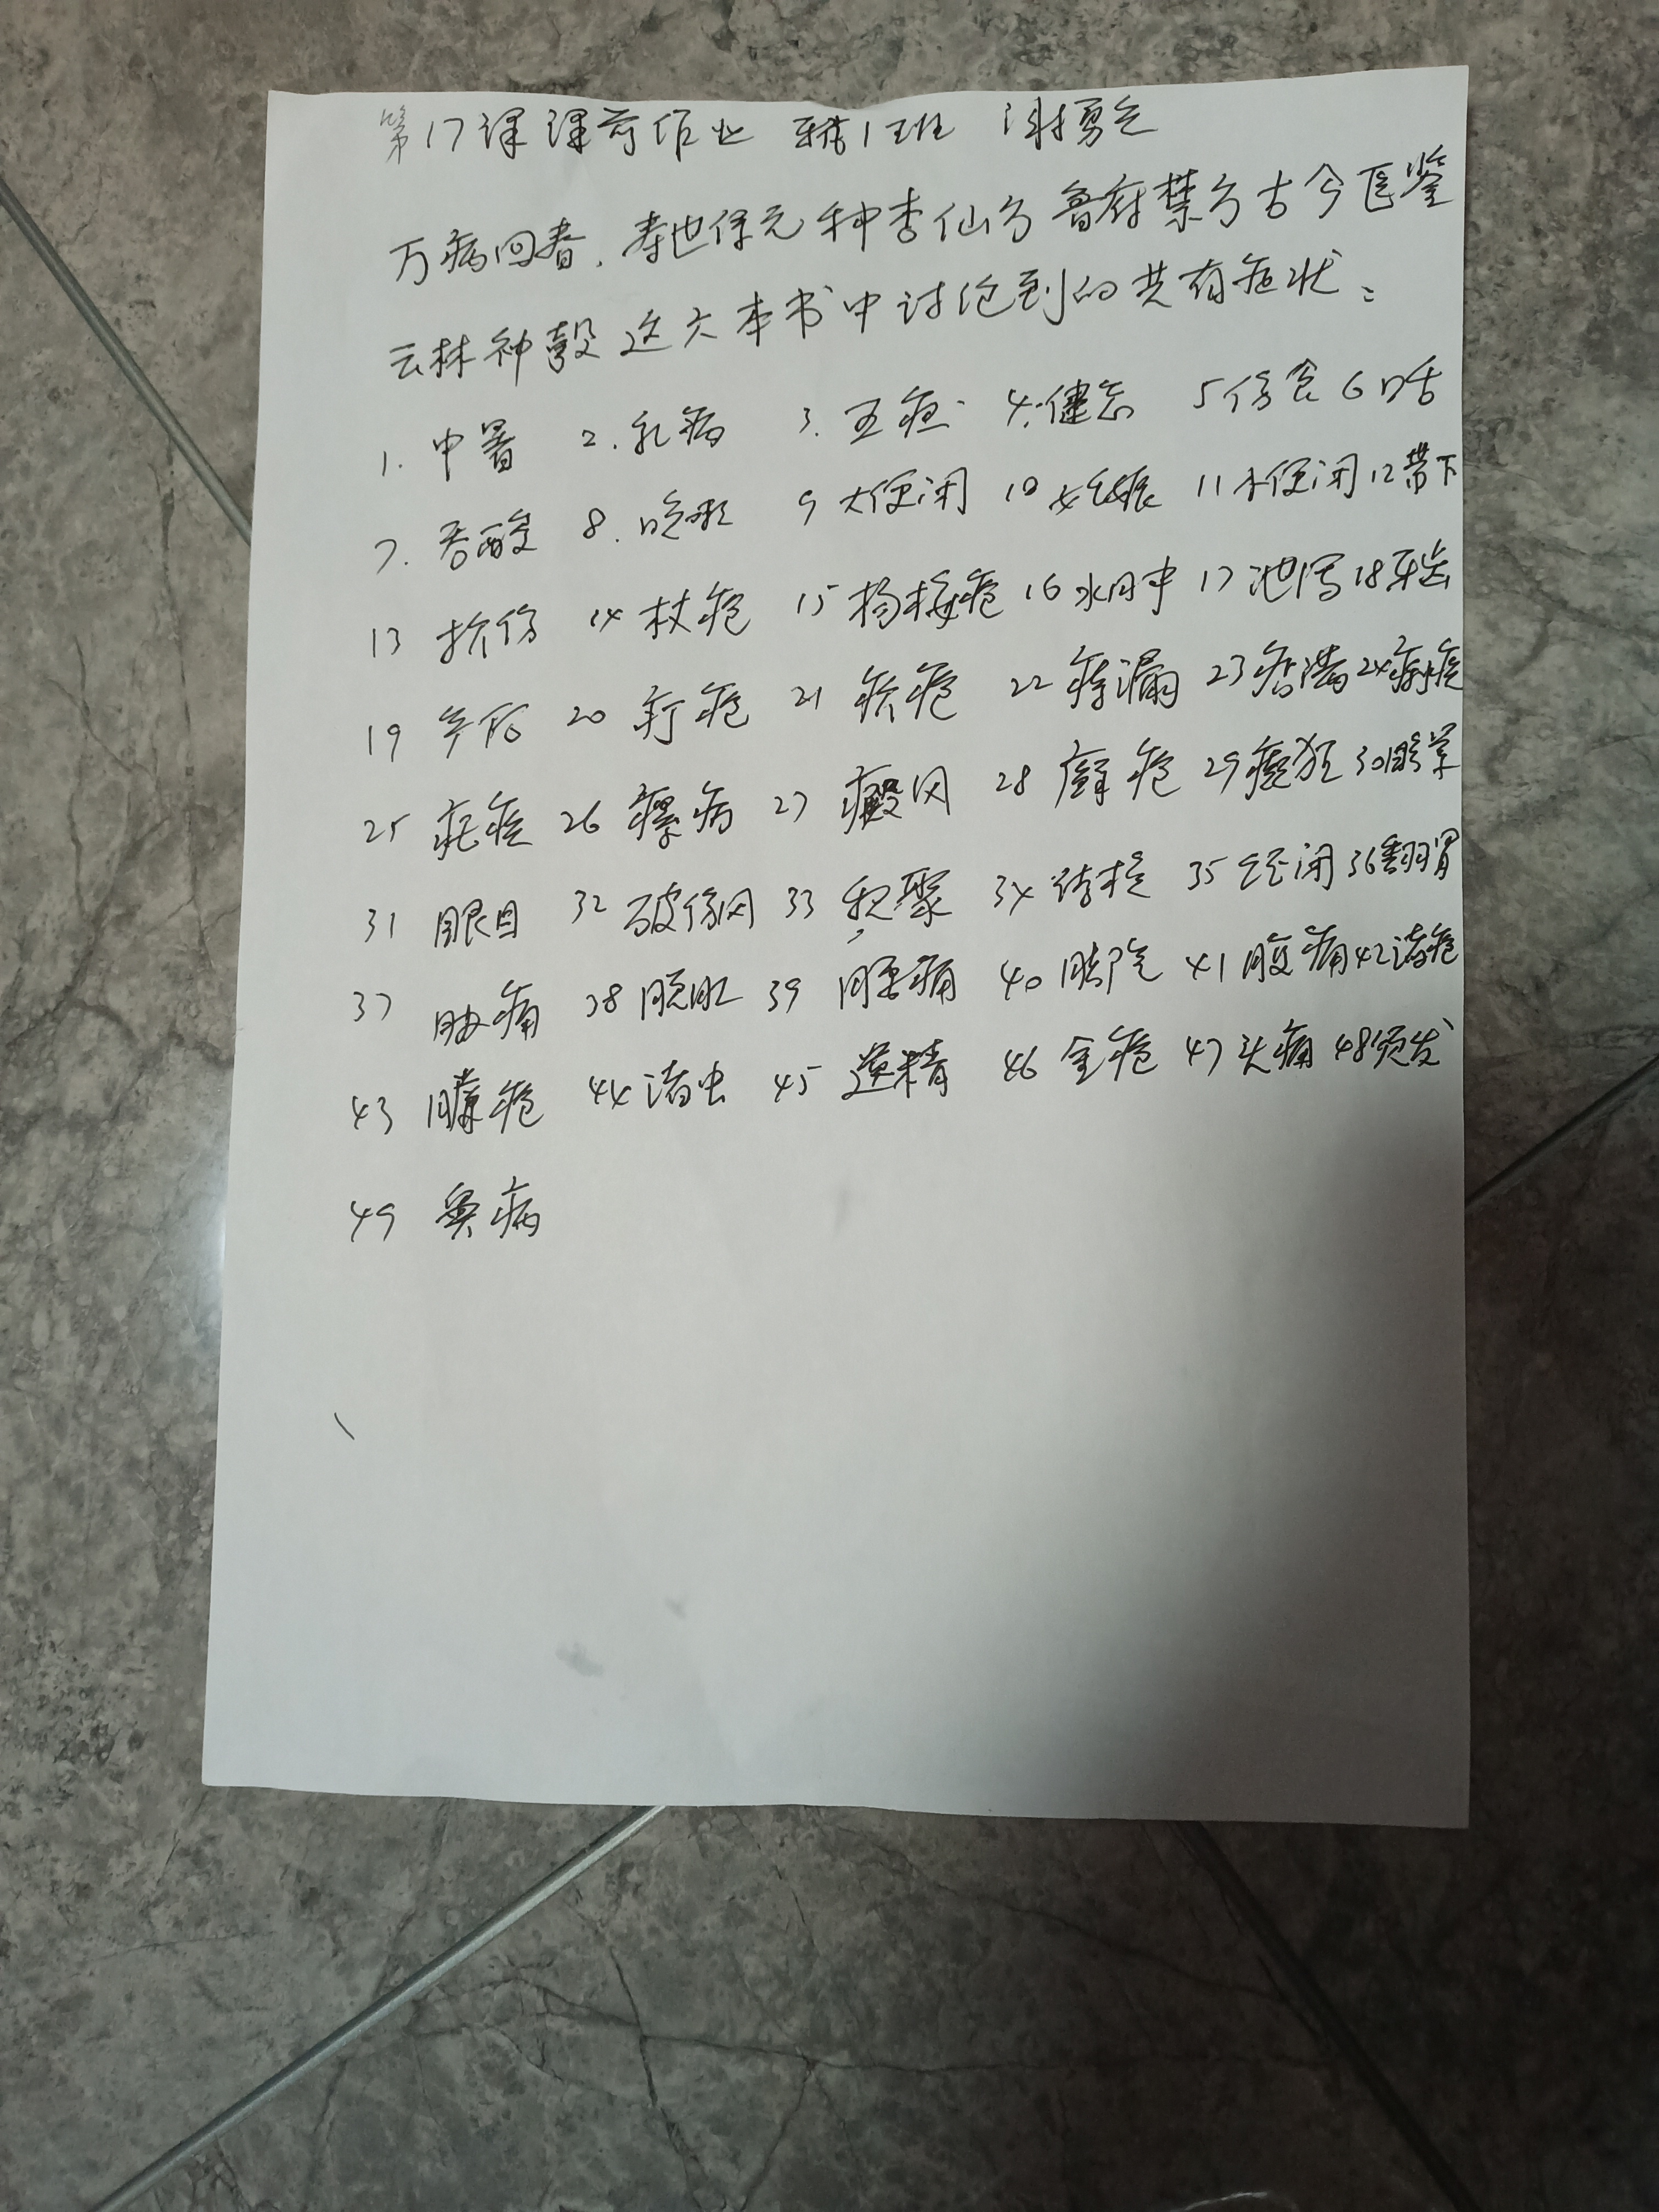 第17课课前作业 1班 谢勇
万病回春、寿世保元 种杏仙方 鲁府禁方 古今医鉴
云林神彀 这六本书中讨论到的共有症状:
1. 中暑 2. 乳病 3. 五疸 4. 健忘 5 伤食 6 口舌
7. 吞酸 8. 咳嗽 9 大便闭 10 妊娠 11 小便闭 12 带下
13 折伤 14 杖疮 15 杨梅疮 16 水肿 17 泄泻 18 牙齿
19 产后 20 疔疮 21 疥疮 22 痔漏 23 痞满 24 痢疾
25 疟疾 26 瘰疬 27 癜风 28 癣疮 29 癫狂 30 膨胀
31 眼目 32 破伤风 33 积聚 34 35 经闭 36 翻胃
37 胁痛 38 脱肛 39 腰痛 40 脚气 41 腹痛 42 诸疮
43 臁疮 44 诸虫 45 遗精 46 金疮 47 头痛 48 须发
49 鼻病